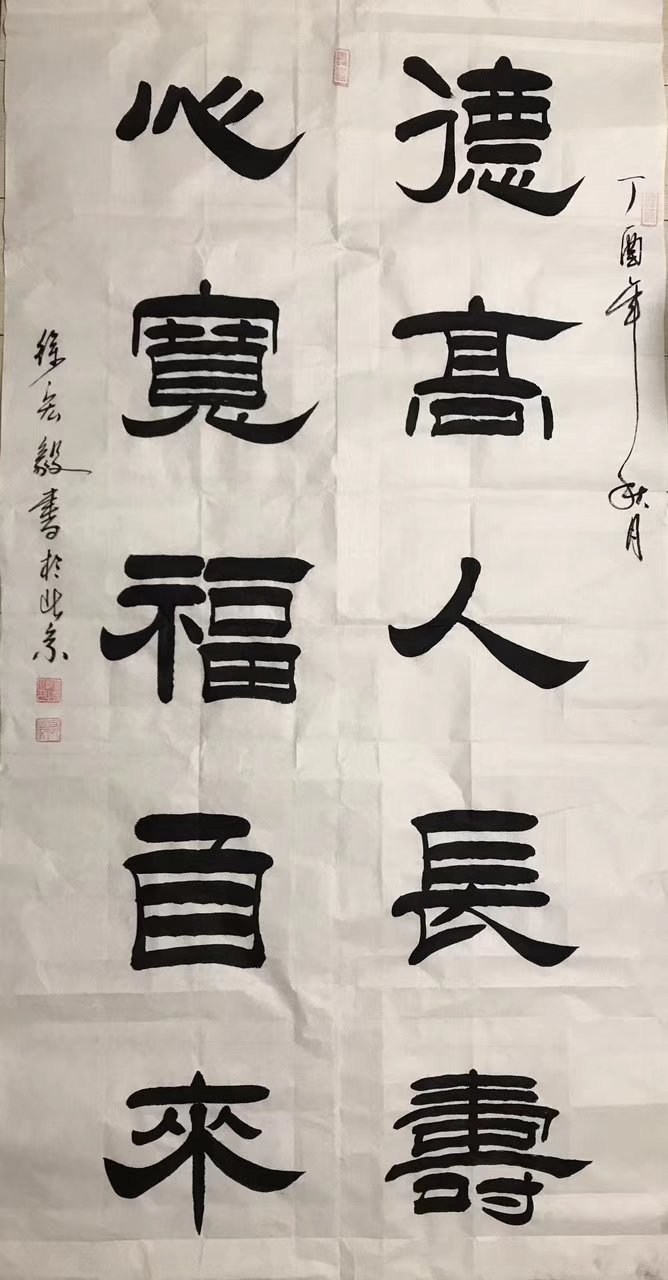 丁酉年秋月
德高人長壽
心寬福自來
徐宏毅書於北京